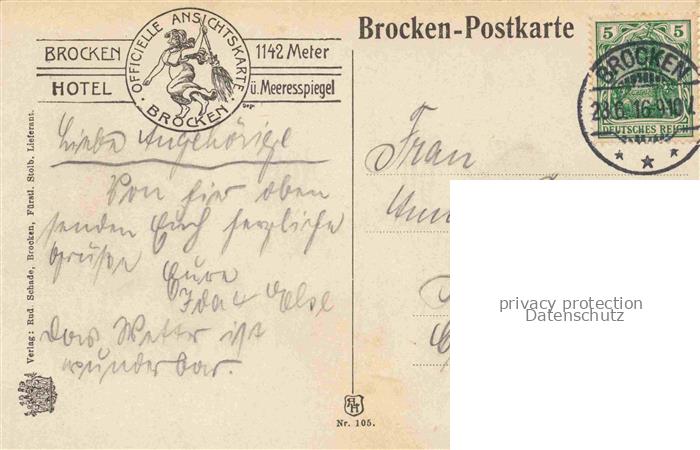 Brocken-Postkarte
BROCKEN 1142 Meter
HOTEL ü. Meeresspiegel
OFFICIELLE ANSICHTSKARTE
BROCKEN
Depr.
5 5
DEUTSCHES REICH
BROCKEN
28.6.16.9-10
Liebe Angehörige
Von hier oben
senden Euch herzliche
Grüße
Eure
Ida u Else
Das Wetter ist
wunderbar.
Frau
privacy protection
Datenschutz
Verlag: Rud. Schade, Brocken, Fürstl. Stolb. Lieferant.
Nr. 105.